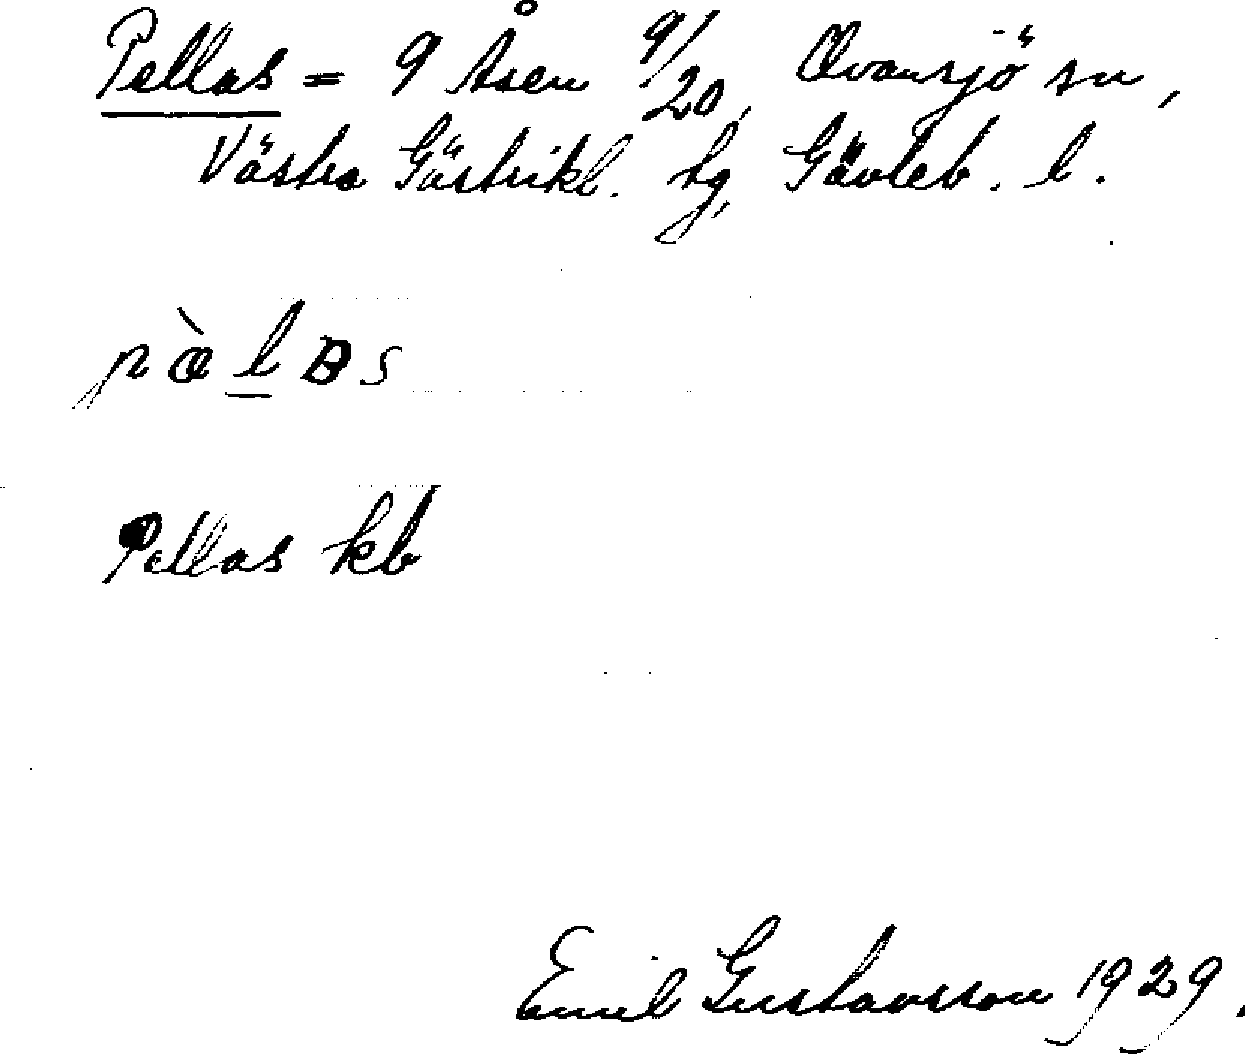 Pellas = 9 Åsen 9/20, Ovansjö sn,
Västra Gästrikl. tg, Gävleb. l.
pæ̀l̲ɒs
Pellas kb
Emil Gustavsson 1929.